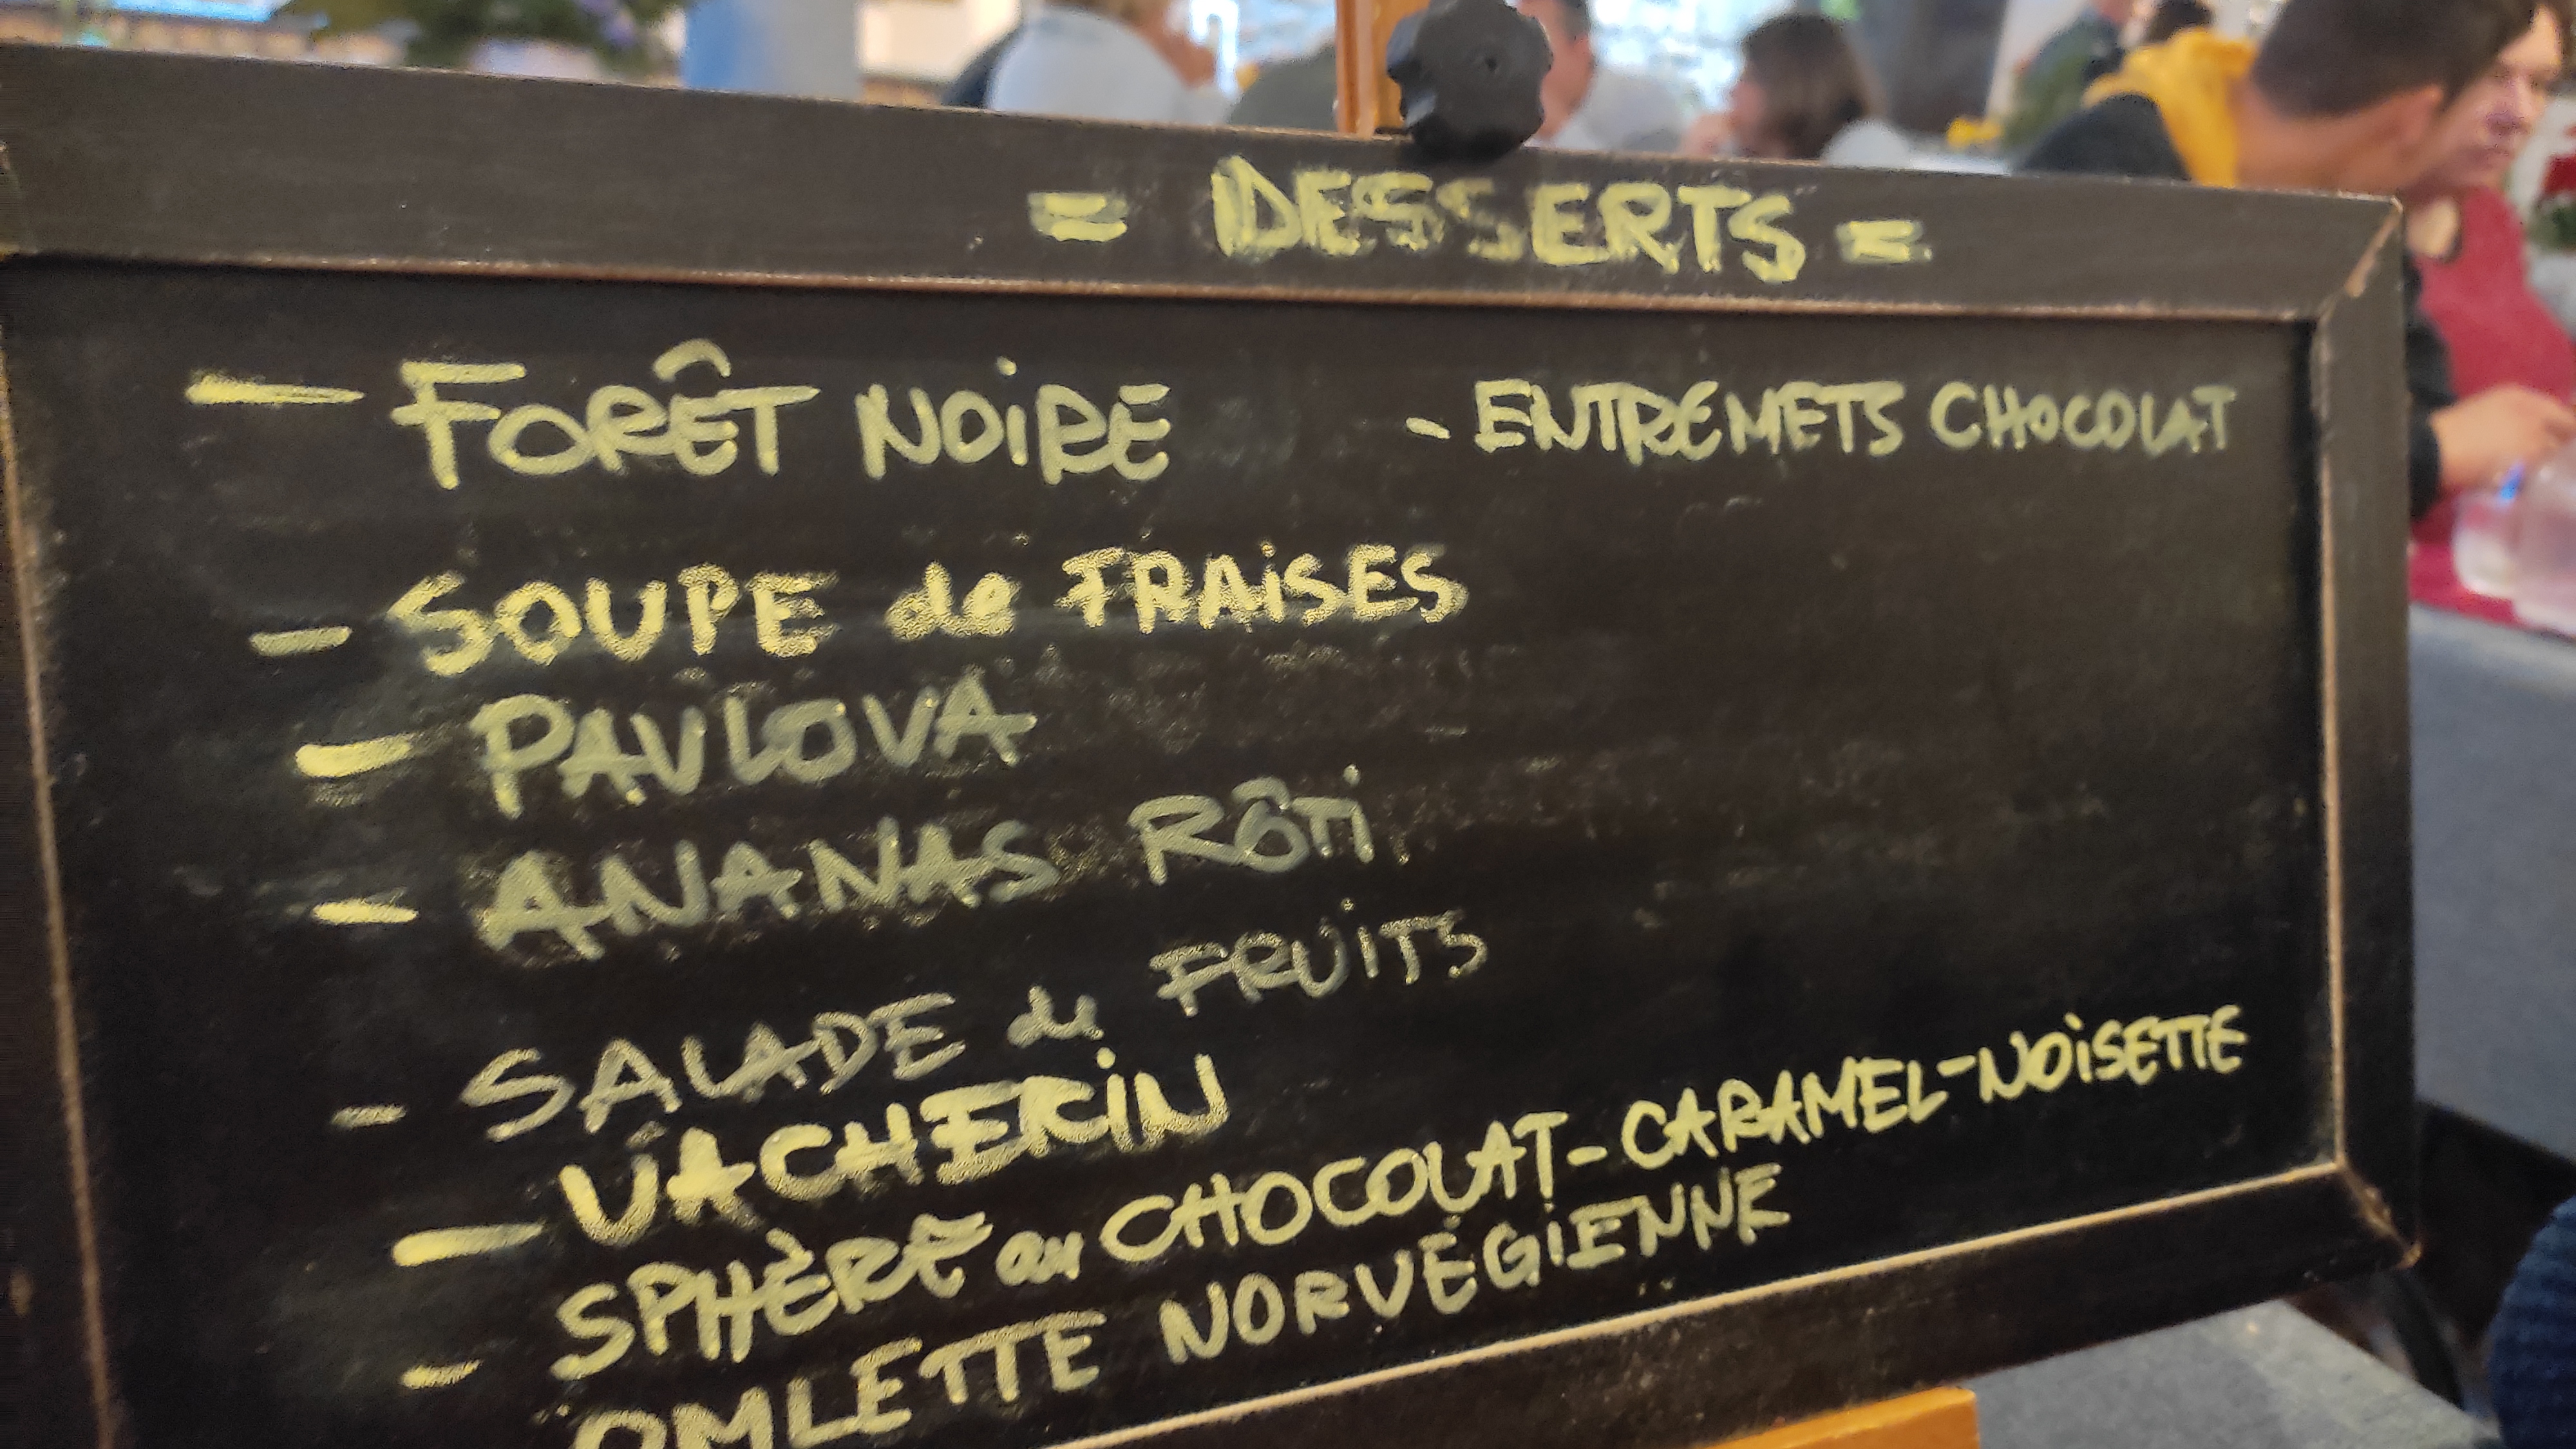 = DESSERTS =
- FORÊT NOIRE
- ENTREMETS CHOCOLAT
- SOUPE de FRAISES
- PAVLOVA
- ANANAS RÔTi
- SALADE de FRUiTS
- VACHERiN
- SPHÈRE au CHOCOLAT-CARAMEL-NOiSETTE
OMLETTE NORVÉGiENNE